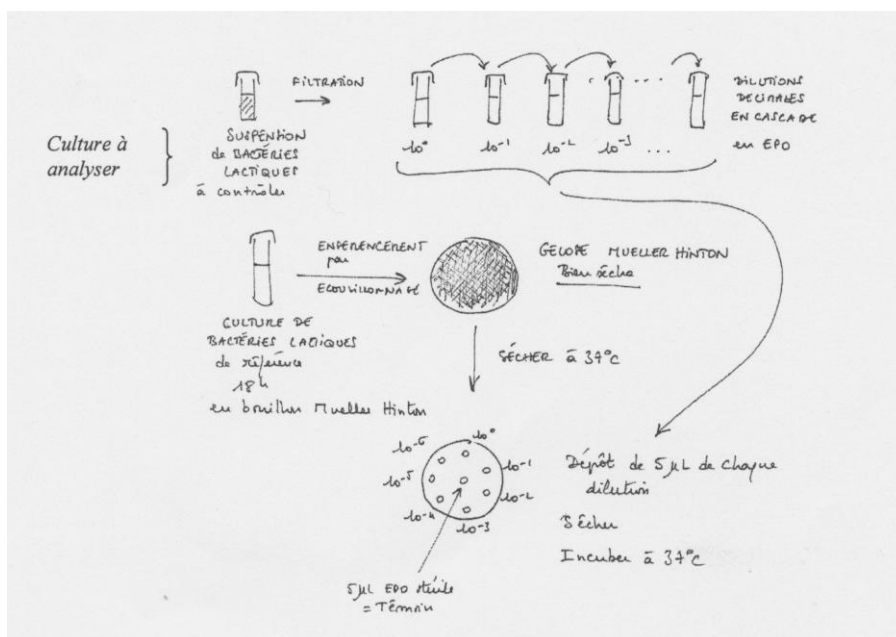 Culture à
analyser
SUSPENTION
de BACTÉRIES
LACTIQUES
à contrôler
FILTRATION
10⁰ 10⁻¹ 10⁻² 10⁻³ ...
DILUTIONS
DÉCIMALES
EN CASCADE
en EPO
CULTURE DE
BACTÉRIES LACTIQUES
de référence
18h
en bouillon Mueller Hinton
par
ECOUVILLONNAGE
GELOSE MUELLER HINTON
Bien sèche
SÉCHER à 37°C
10⁰
10⁻¹
10⁻²
10⁻³
10⁻⁴
10⁻⁵
10⁻⁶
5µL EPO stérile
= Témoin
Dépôt de 5 µL de chaque
dilution
Sécher
Incuber à 37°C